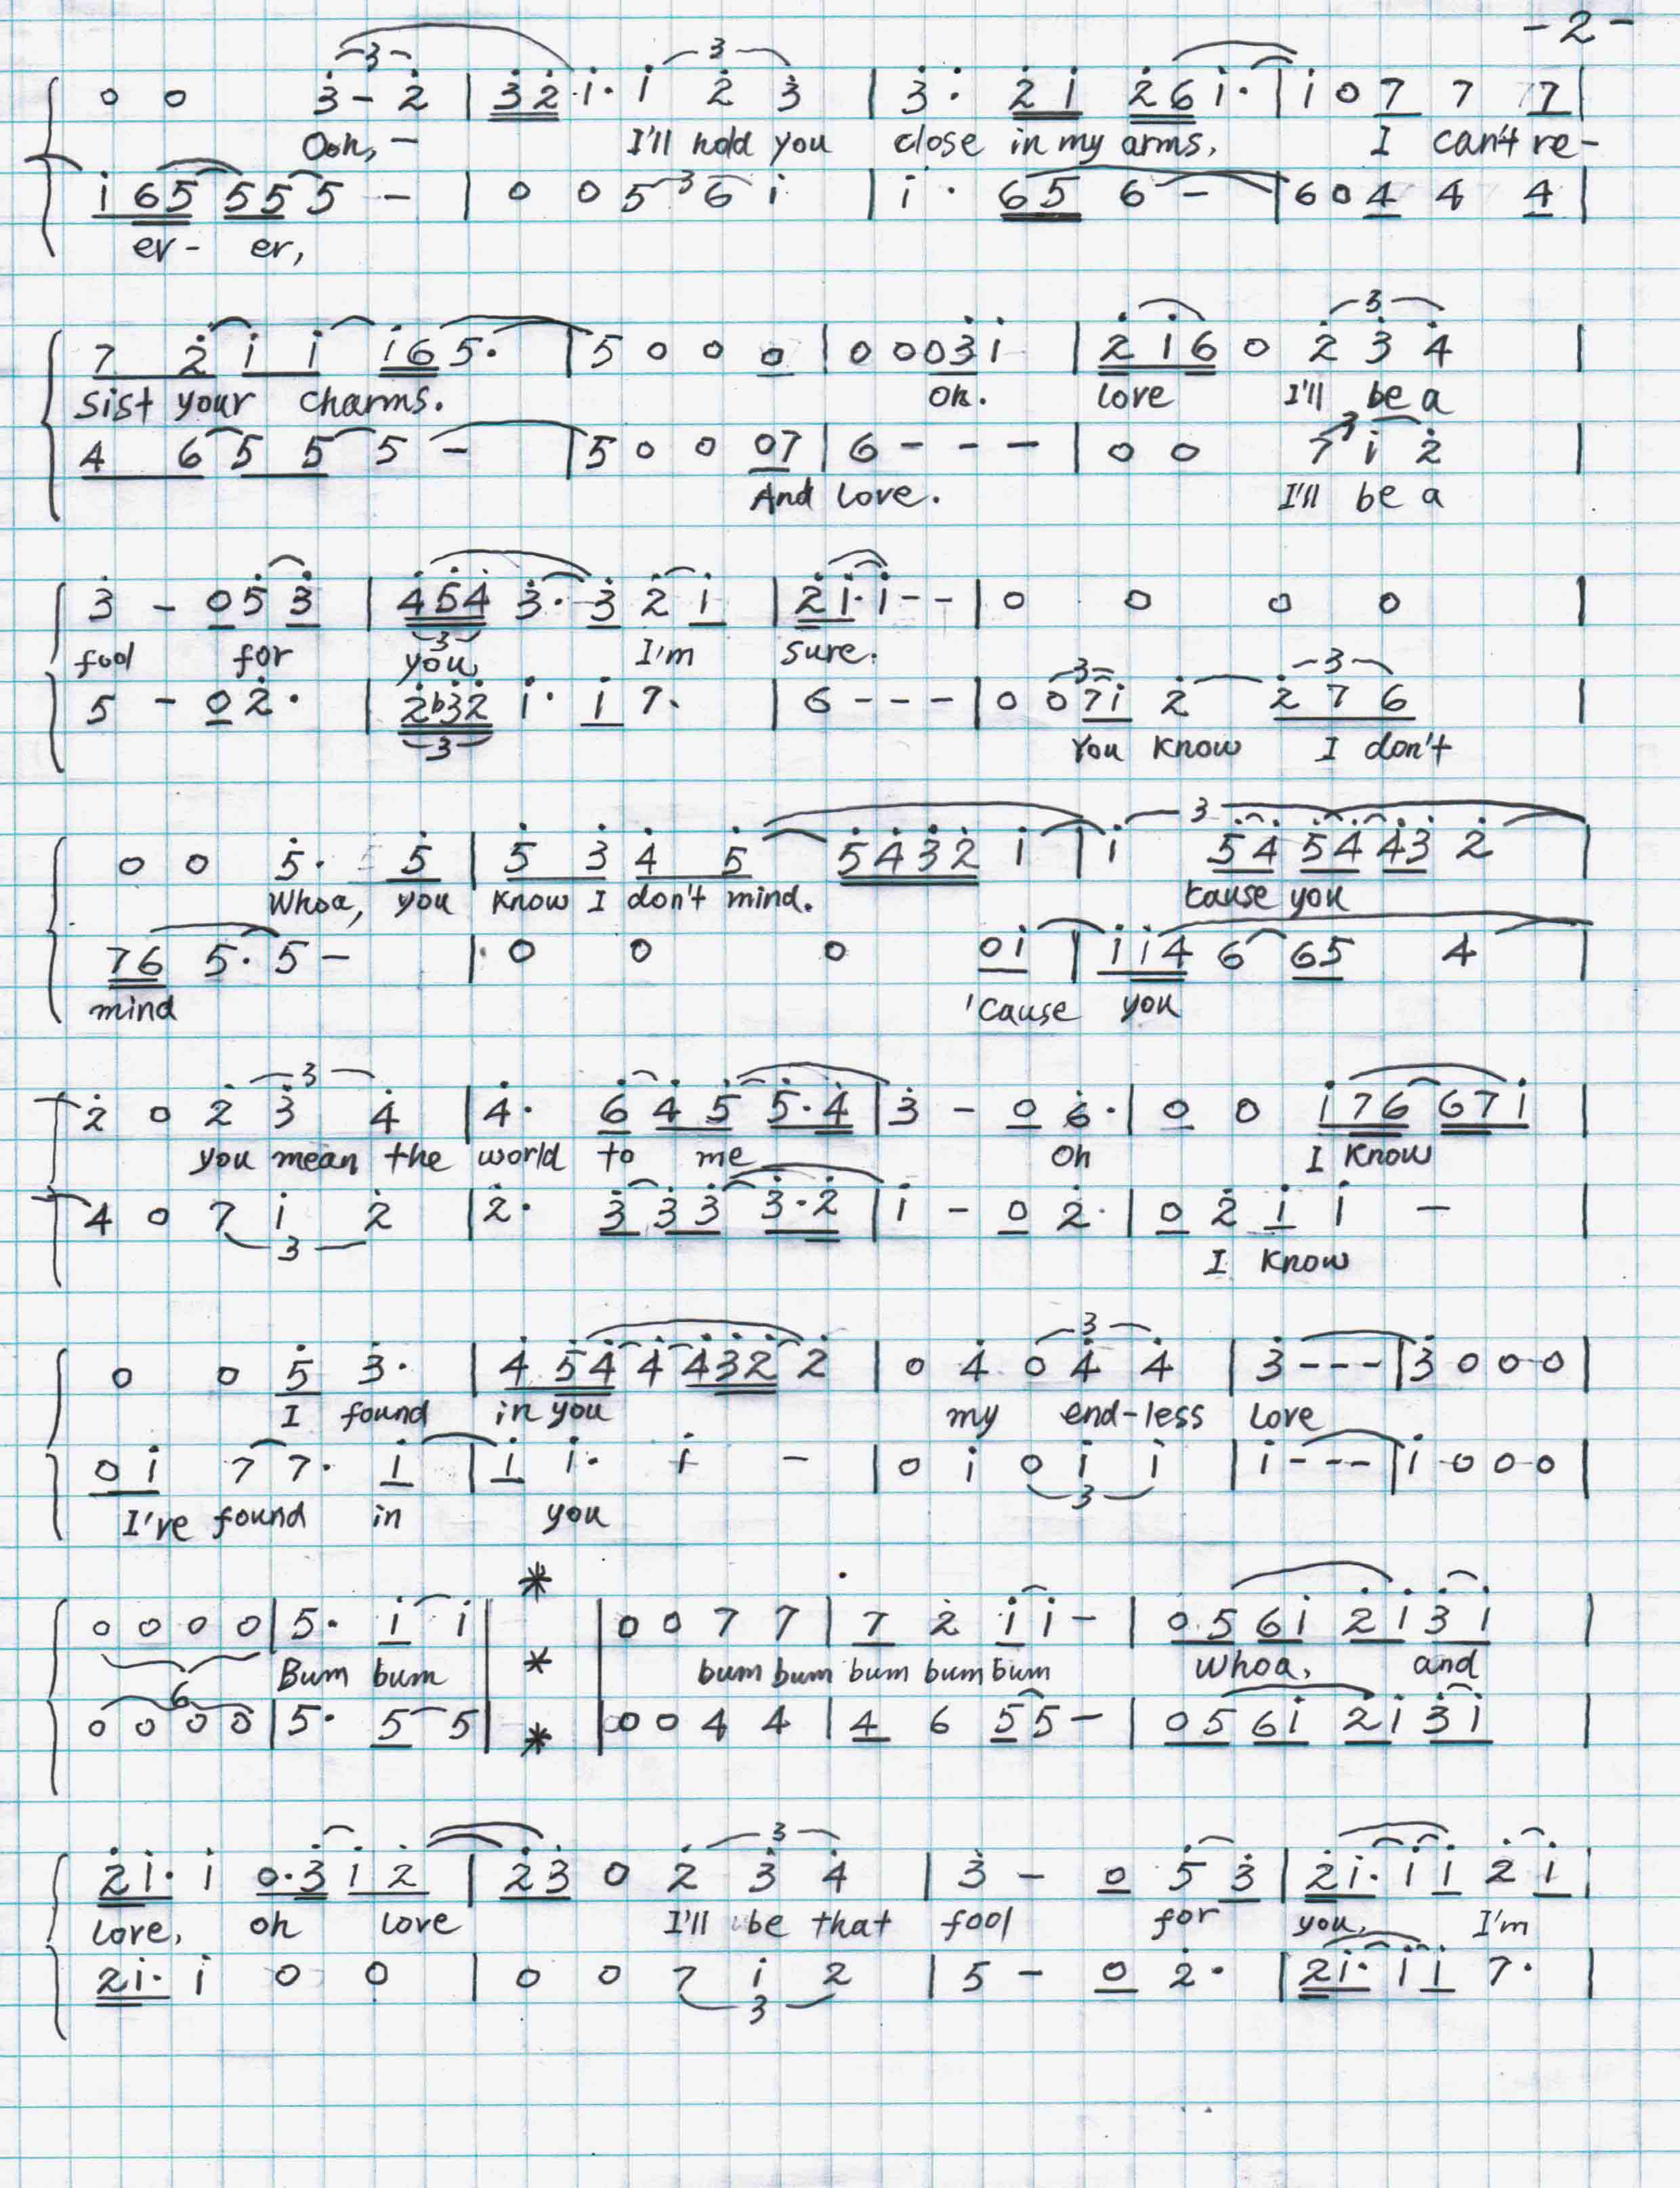 -2-
0 0 3̇ - 2̇ | 3̇2̇ i· i 2̇ 3̇ | 3̇· 2̇ i 2̇6i· | i 0 7 7 7 |
Ooh, - I'll hold you close in my arms, I can't re-
i 65 55 5 - | 0 0 5 3 6 i | i · 65 6 - | 6 0 4 4 4 |
er- er,
7 2̇ i i i6 5· | 5 0 0 0 | 0 0 0 3̇ i | 2̇ i 6 0 2̇ 3̇ 4̇ |
Sist your charms. Oh. love I'll be a
4 6 5 5 5 - | 5 0 0 07 | 6 - - - | 0 0 7 i 2̇ |
And love. I'll be a
3̇ - 0 5̇ 3̇ | 4̇5̇4̇ 3̇· 3̇ 2̇ i | 2̇ i· i - - | 0 0 0 0 |
fool for you, I'm sure.
5 - 0 2̇· | 2̇b3̇2̇ i· i 7· | 6 - - - | 0 0 7i 2̇ 2̇ 7 6 |
You know I don't
0 0 5̇· 5̇ | 5̇ 3̇ 4̇ 5̇ 5̇4̇3̇2̇ i | i 5̇4̇ 5̇4̇ 4̇3̇ 2̇ |
Whoa, you know I don't mind. 'cause you
76 5· 5 - | 0 0 0 0i | i i4 6 65 4 |
mind 'Cause you
2̇ 0 2̇ 3̇ 4̇ | 4̇· 6̇ 4̇ 5̇ 5̇·4̇ | 3̇ - 0 6· | 0 0 i76 67i |
you mean the world to me Oh I know
4 0 7 i 2̇ | 2̇· 3̇ 3̇3̇ 3̇·2̇ | i - 0 2̇· | 0 2̇ i i - |
I know
0 0 5̇ 3̇· | 4̇ 5̇4̇ 4̇ 4̇3̇2̇ 2̇ | 0 4̇ 0 4̇ 4̇ | 3̇ - - - | 3̇ 0 0 0 |
I found in you my end-less love
0 i 7 7· i | i i· i - | 0 i 0 i i | i - - - | i 0 0 0 |
I've found in you
0 0 0 0 | 5· i i || * || 0 0 7 7 | 7 2̇ i i - | 0·5 6i 2̇i 3̇i |
6 Bum bum * bum bum bum bum bum whoa, and
0 0 0 0 | 5· 5 5 || * || 0 0 4 4 | 4 6 5 5 - | 05 6i 2̇i 3̇i |
2̇i· i 0·3̇ i 2̇ | 2̇3̇ 0 2̇ 3̇ 4̇ | 3̇ - 0 5̇ 3̇ | 2̇i· i i 2̇ i |
love, oh love I'll be that fool for you, I'm
2̇i· i 0 0 | 0 0 7 i 2 | 5 - 0 2̇· | 2̇i· i i 7· |